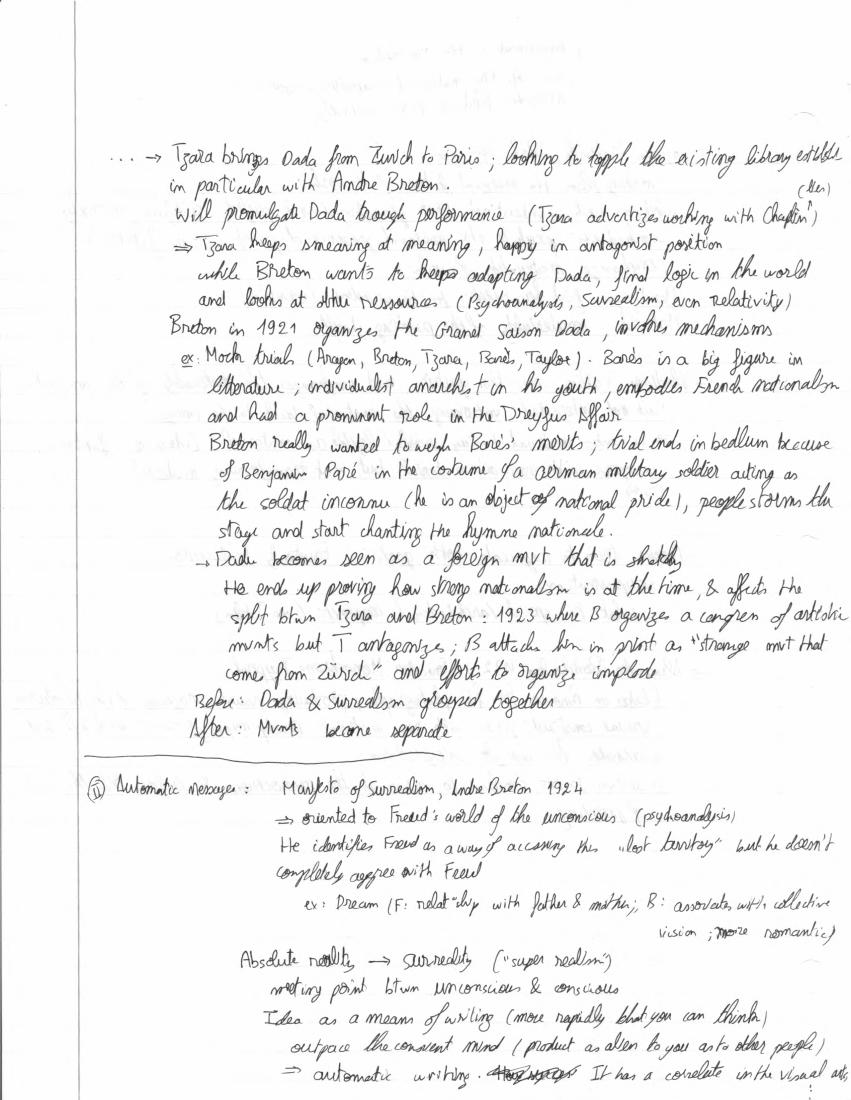 ... → Tzara brings Dada from Zurich to Paris ; looking to topple the existing library
in particular with Andre Breton.
(Man)
Will promulgate Dada trough performance (Tzara advertizes working with Chaplin)
⇒ Tzara keeps smearing at meaning, happy in antagonist position
while Breton wants to keep adapting Dada, find logic in the world
and looks at other ressources (Psychoanalysis, Surrealism, even relativity)
Breton in 1921 organizes the Grand Saison Dada, involves mechanisms
ex: Mock trials (Aragon, Breton, Tzara, Barès, Taylor). Barès is a big figure in
litterature ; individualist anarchist in his youth, embodies French nationalism
and had a prominent role in the Dreyfus Affair
Breton really wanted to weigh Barès' merits ; trial ends in bedlum because
of Benjamin Paré in the costume of a german military soldier acting as
the soldat inconnu (he is an object of national pride), people storms the
stage and start chanting the hymne nationale.
→ Dada becomes seen as a foreign mvt that is sketchy
He ends up proving how strong nationalism is at the time, & affects the
split btwn Tzara and Breton : 1923 where B organizes a congres of artistic
mvmts but T antagonizes ; B attacks him in print as "strange mvt that
come from Zürich" and efforts to organize implode
Before : Dada & Surrealism grouped together
After : Mvmts become separate
II Automatic messages : Manifesto of Surrealism, Andre Breton 1924
⇒ oriented to Freud's world of the unconscious (psychoanalysis)
He identifies Freud as a way of accessing this "lost territory" but he doesn't
completely aggree with Freud
ex : Dream (F: relat°ship with father & mother; B : associates with collective
vision ; more romantic)
Absolute reality → surreality ("super realism")
meeting point btwn unconscious & conscious
Idea as a means of writing (more rapidly that you can think)
outpace the conscient mind (product as alien to you as to other people)
⇒ automatic writing. It has a correlate in the visual arts